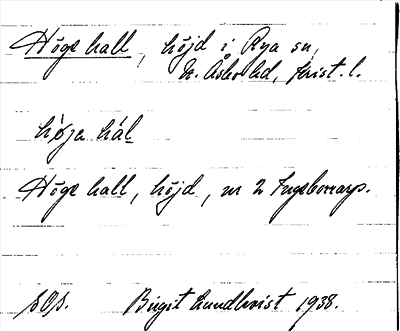 Höge hall, höjd i Rya sn,
N. Åsbo hd, Krist. l.
hö̀ja hál
Höge hall, höjd, nr 2 Ingeborrarp.
Birgit Lundkvist 1938.